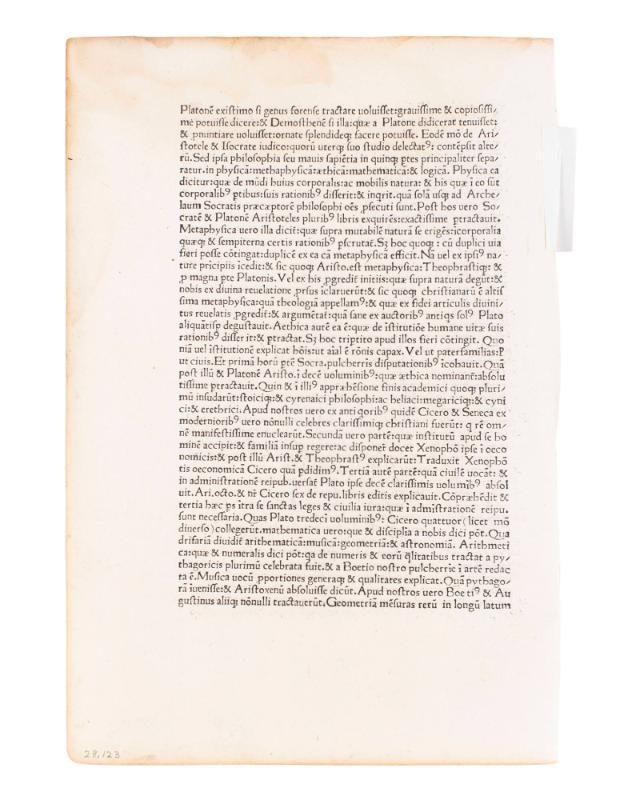 Platonē existimo si genus forense tractare uoluisset:grauissime & copiosissi/
me potuisse dicere:& Demosthenē si illa:quæ a Platone didicerat tenuisset:
& ꝓnuntiare uoluisset:ornate splendideqꝫ facere potuisse. Eodē mō de Ari/
stotele & Isocrate iudico:quorū uterqꝫ suo studio delectatꝰ: contēpsit alte/
rū. Sed ipsa philosophia seu mauis sapiētia in quinqꝫ ꝑtes principaliter sepa/
ratur. in physicā:methaphysicā:æthicā:mathematicā:& logicā. Physica ea
dicitur:quæ de mūdi huius corporalis:ac mobilis natura: & his quæ ī eo sūt
corporalibꝰ ꝑtibus:suis rationibꝰ disserit:& inqrit. quā solā usqꝫ ad Arche/
laum Socratis præceptorē philosophi oēs ꝓsecuti sunt. Post hos uero So/
cratē & Platonē Aristoteles pluribꝰ libris exquirēs:exactissime ptractauit.
Metaphysica uero illa dicit̄:quæ supra mutabilē naturā se erigēs:icorporalia
quæqꝫ & sempiterna certis rationibꝰ pscrutat̄. Sꝫ hoc quoqꝫ : cū duplici uia
fieri posse cōtingat:duplicē ex ea cā metaphysicā efficit. Nā uel ex ipsiꝰ na/
ture pricipiis īcedit:& sic quoqꝫ Aristo.est metaphysica:Theophrastiqꝫ: &
ꝓ magna pte Platonis. Vel ex his ꝓgredit̄ initiis:quæ supra naturā degūt:&
nobis ex diuina reuelatione ꝓrsus iclaruerūt:& sic quoqꝫ christianarū ē altis
sima metaphysica:quā theologiā appellamꝰ:& quæ ex fidei articulis diuini/
tus reuelatis ꝓgredit̄:& argumētat̄:quā sane ex auctoribꝰ antiqs solꝰ Plato
aliquātisp degustauit. Aethica autē ea ē:quæ de istitutiōe humane uitæ suis
rationibꝰ disserit:& ptractat. Sꝫ hoc triptito apud illos fieri cōtingit. Quo
niā uel istitutionē explicat hōis:ut aīal ē rōnis capax. Vel ut paterfamilias:V
ut ciuis. Et primā horū ptē Socra.pulcherris disputationibꝰ icohauit. Quā
post illū & Platonē Aristo.ī decē uoluminibꝰ:quæ æthica nominant̄:absolu
tissime ptractauit. Quin & ī illiꝰ appræhēsione finis academici quoqꝫ pluri/
mū insudarūt:stoiciqꝫ:& cyrenaici philosophi:ac heliaci:megariciqꝫ: & cyni
ci:& erethrici. Apud nostros uero ex antiqoribꝰ quidē Cicero & Seneca ex
modernioribꝰ uero nōnulli celebres clarissimiqꝫ christiani fuerūt: q rē om/
nē manifestissime enuclearūt. Secundā uero partē:quæ institutū apud se ho
minē accipit:& familiā insup regere:ac disponer docet Xenophō ipse ī oeco
nomicis:& post illū Arist.& Theophrastꝰ explicarūt: Traduxit Xenophō
tis oeconomicā Cicero quā pdidimꝰ. Tertiā autē partē:quā ciuilē uocāt: &
in administratione reipub.uersat̄ Plato ipse decē clarissimis uolumībꝰ absol
uit. Ari.octo.& nr̄ Cicero sex de repu.libris editis explicauit. Cōpræhēdit &
tertia hæc ꝑs ītra se sanctas leges & ciuilia iura:quæ ī admistratione reipu.
sunt necessaria. Quas Plato tredeci uoluminibꝰ: Cicero quattuor(licet mō
diuerso)collegerūt. mathematica uero:que & disciplīa a nobis dici pōt. Qua
drifariā diuidit̄ arithmeticā:musicā:geometriā:& astronomiā. Arithmeti
ca:quæ & numeralis dici pōt:qa de numeris & eorū qlitatibus tractat a py/
thagoricis plurimū celebrata fuit.& a Boetio nostro pulcherrie ī artē redac
ta ē. Musica uocū ꝓportiones generaqꝫ & qualitates explicat. Quā pythago/
rā iuenisse:& Aristoxenū absoluisse dicūt. Apud nostros uero Boetiꝰ & Au
gustinus aliiqꝫ nōnulli tractauerūt. Geometriā mēsuras rerū in longū latum
28.123